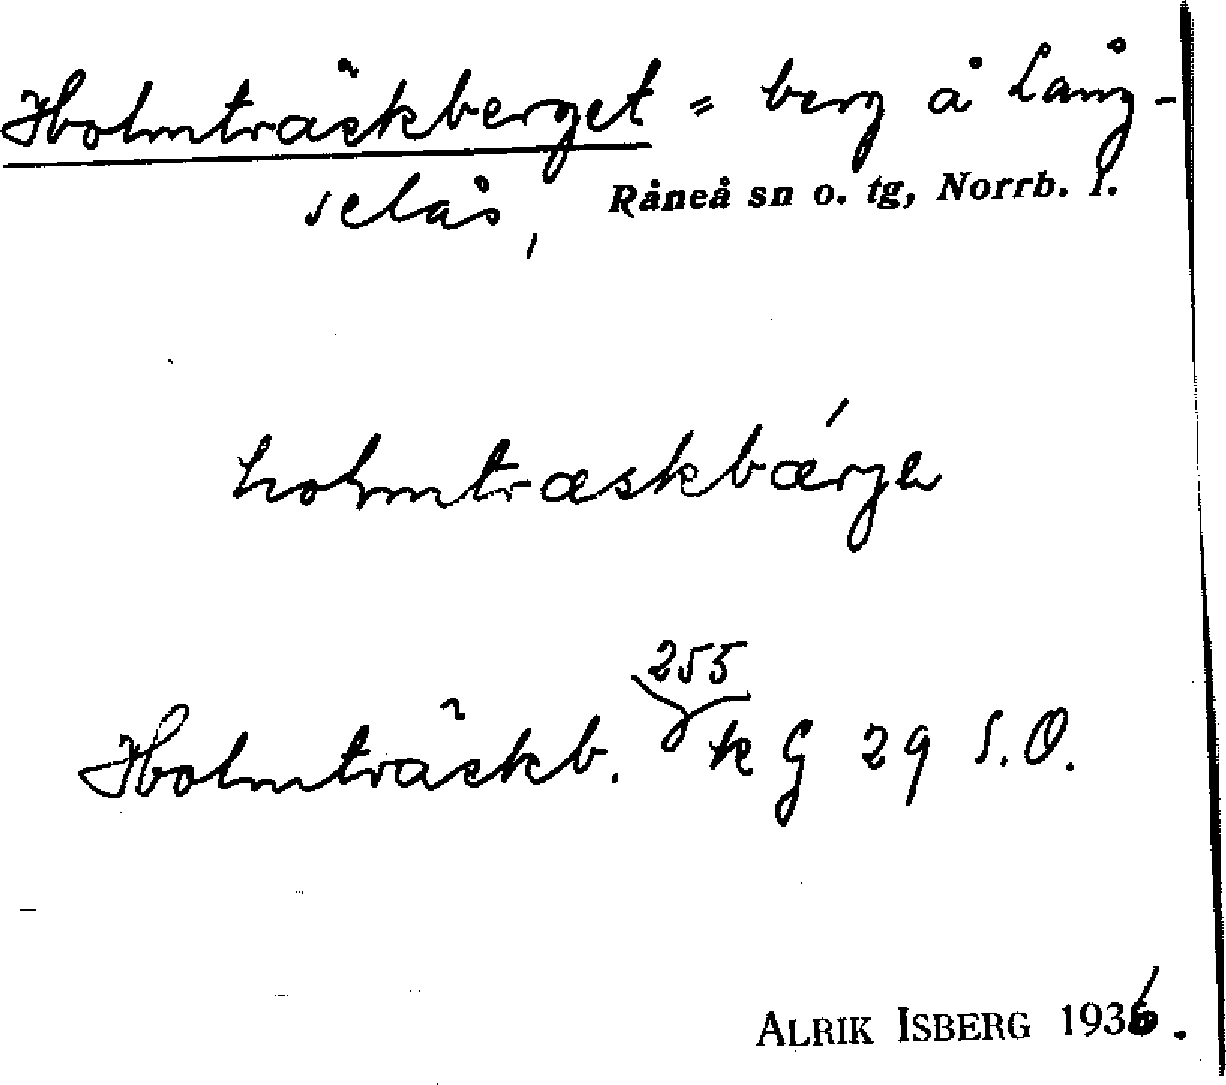 Holmträskberget = berg å Lång-
selås, Råneå sn o. tg, Norrb. l.
holmtræskbǽrjə
255
Holmträskb. k G 29 S.O.
ALRIK ISBERG 1936.